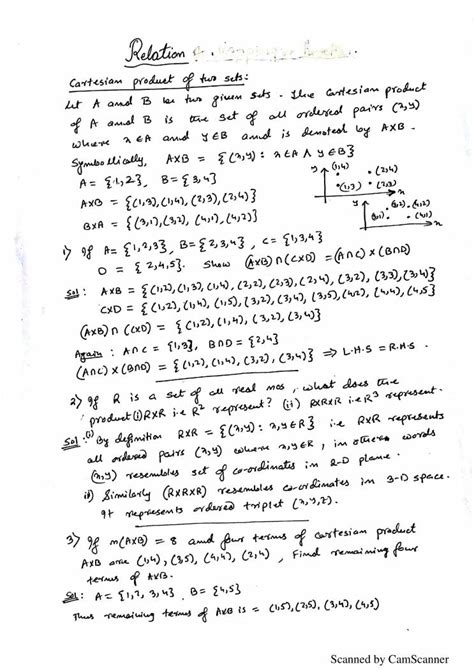 Relation
Cartesian product of two sets:
Let A and B be two given sets. The Cartesian product
of A and B is the set of all ordered pairs (x,y)
where x∈A and y∈B and is denoted by AxB.
Symbolically, AxB = {(x,y): x∈A ∧ y∈B}
A = {1,2}, B = {3,4}
AxB = {(1,3),(1,4),(2,3),(2,4)}
BxA = {(3,1),(3,2),(4,1),(4,2)}
y (1,4) (2,4)
(1,3) (2,3)
x
y (3,2) (4,2)
(3,1) (4,1)
x
1) If A = {1,2,3}, B = {2,3,4}, C = {1,3,4}
D = {2,4,5}. Show (AxB)∩(CxD) = (A∩C)x(B∩D)
Sol: AxB = {(1,2),(1,3),(1,4),(2,2),(2,3),(2,4),(3,2),(3,3),(3,4)}
CxD = {(1,2),(1,4),(1,5),(3,2),(3,4),(3,5),(4,2),(4,4),(4,5}
(AxB)∩(CxD) = {(1,2),(1,4),(3,2),(3,4)}
Again: A∩C = {1,3}, B∩D = {2,4}
(A∩C)x(B∩D) = {(1,2),(1,4),(3,2),(3,4)} ⇒ L.H.S = R.H.S.
2) If R is a set of all real nos, what does the
product (i) RxR i.e R² represent? (ii) RxRxR i.e R³ represent.
Sol: (i) By definition RxR = {(x,y): x,y∈R} i.e RxR represents
all ordered pairs (x,y) where x,y∈R, in others words
(x,y) resembles set of co-ordinates in 2-D plane.
ii) Similarly (RxRxR) resembles co-ordinates in 3-D space.
It represents ordered triplet (x,y,z).
3) If n(AxB) = 8 and four terms of cartesian product
AxB are (1,4), (3,5), (4,4), (2,4), Find remaining four
terms of AxB.
Sol: A = {1,2,3,4}, B = {4,5}
Thus remaining terms of AxB is = (1,5),(2,5),(3,4),(4,5)
Scanned by CamScanner